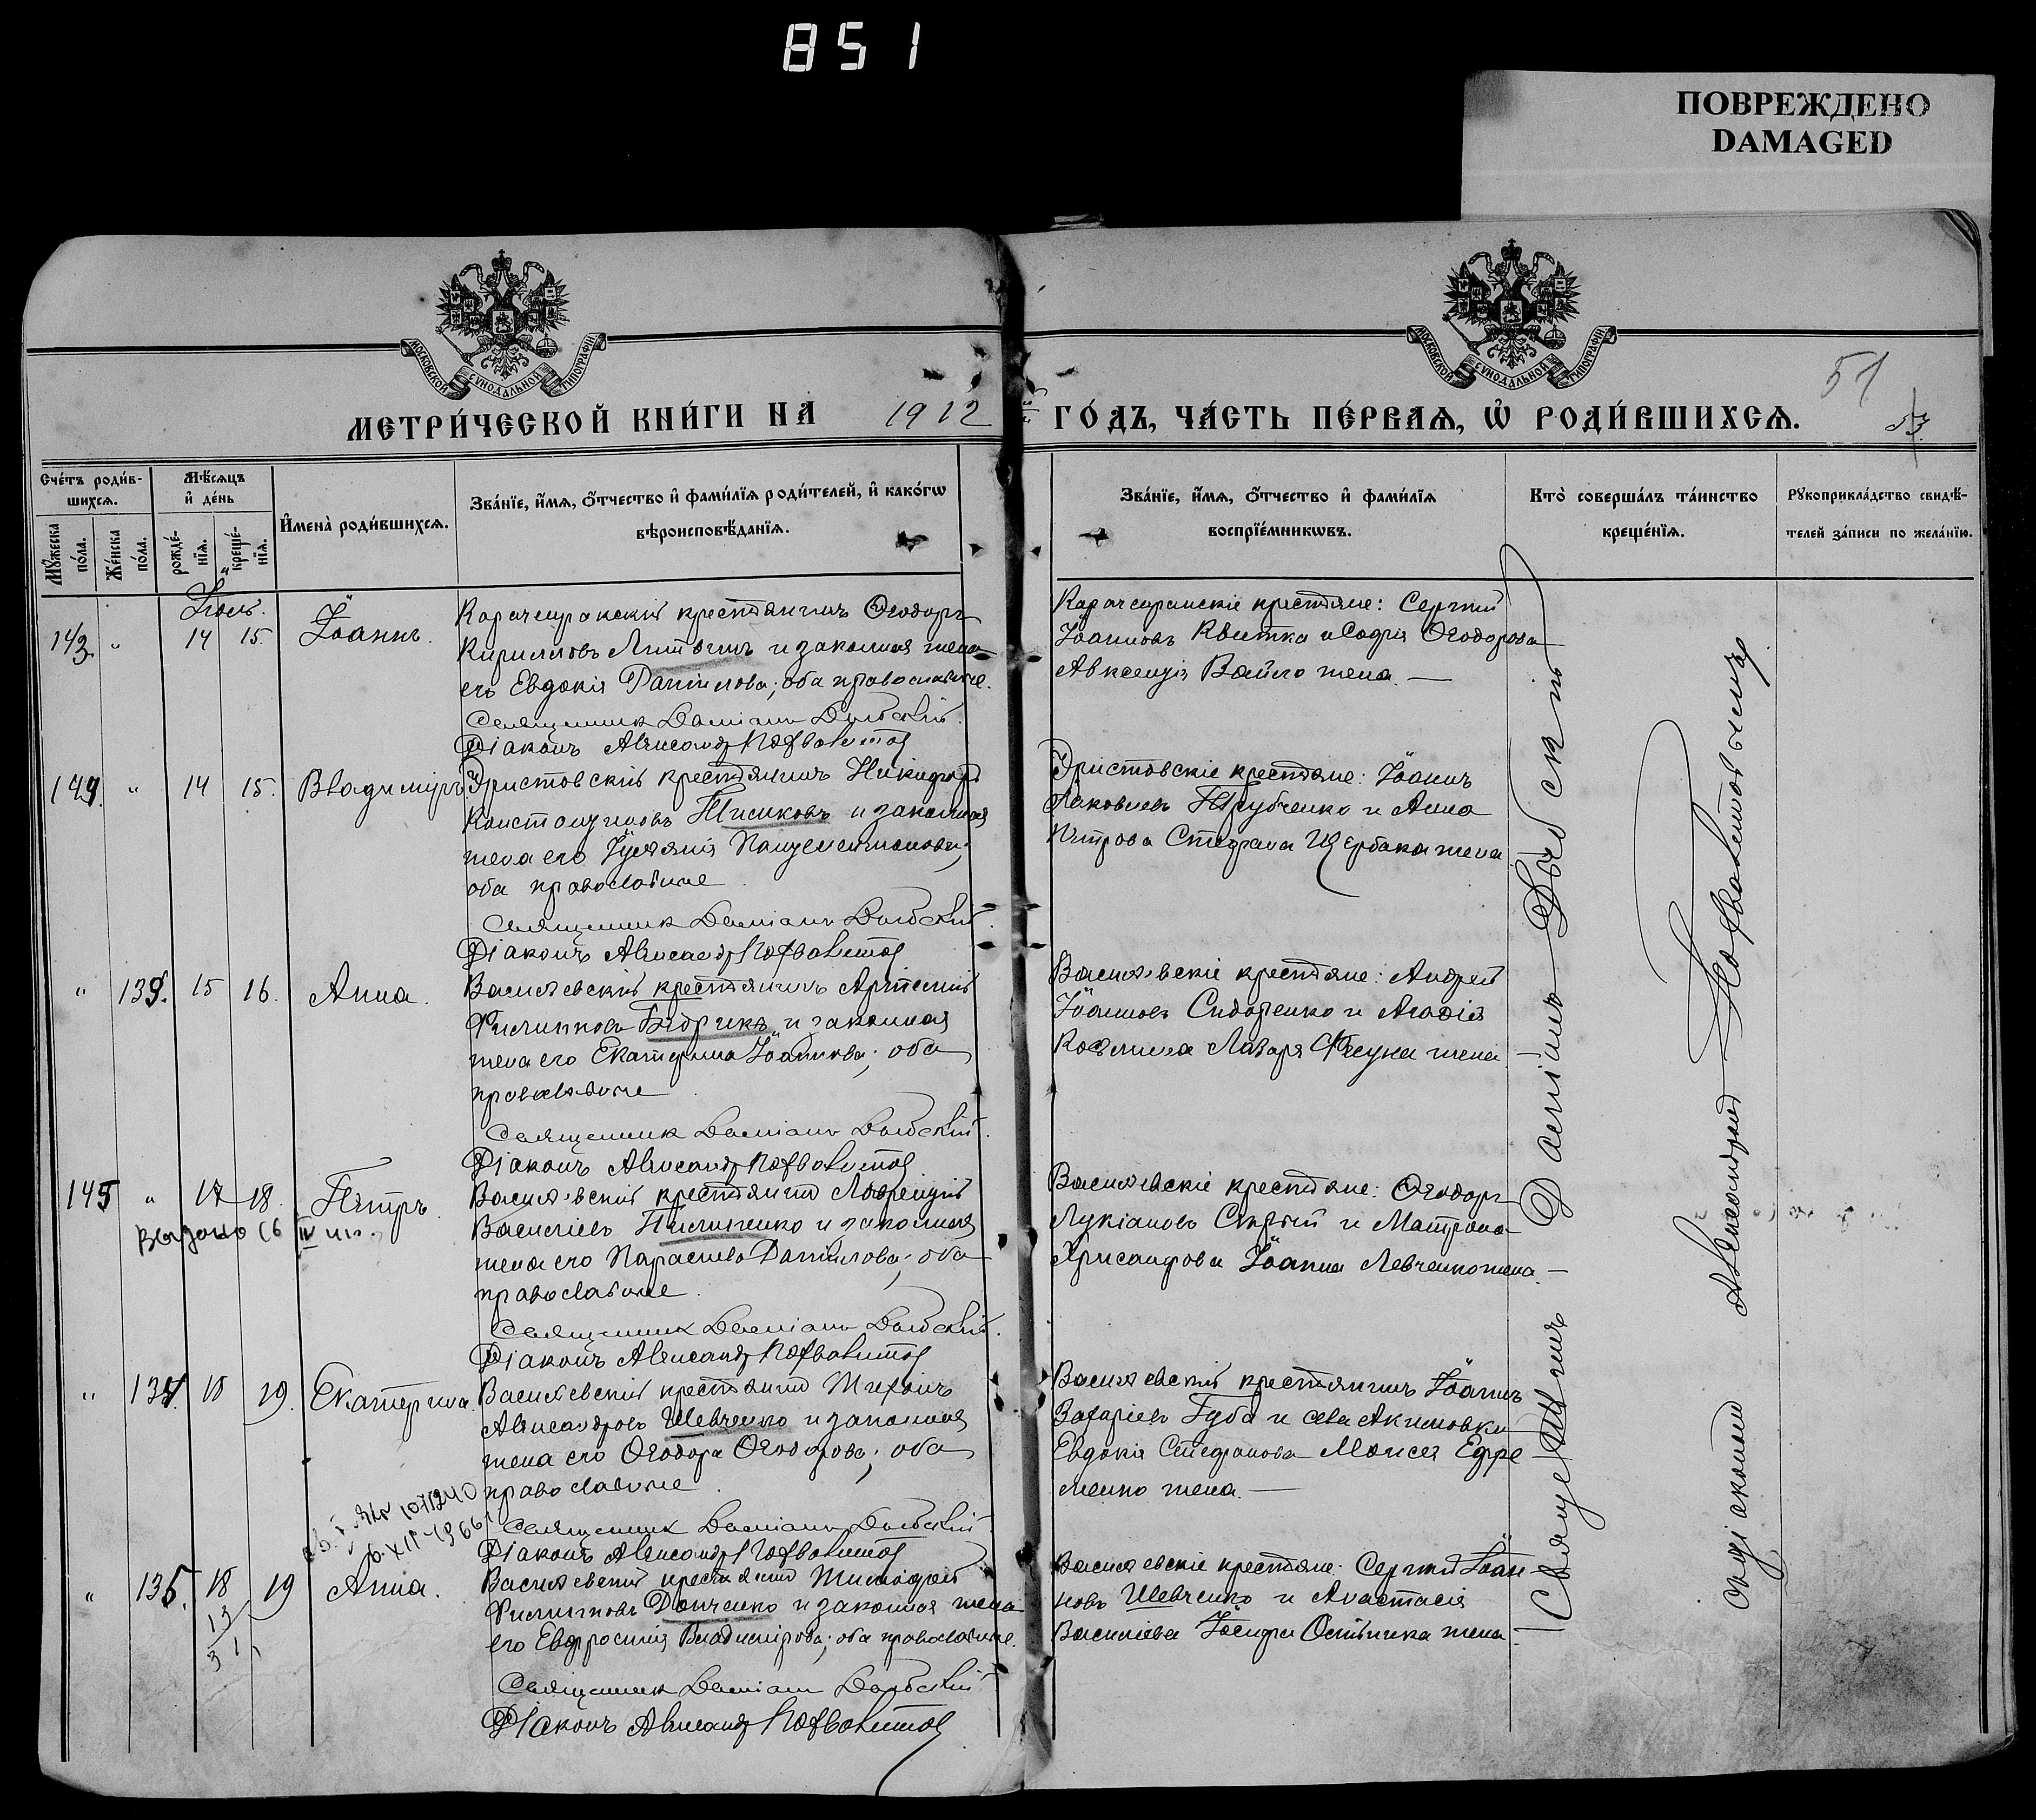 851
ПОВРЕЖДЕНО
DAMAGED
МОСКОВСКОЙ СѴНОДАЛЬНОЙ ТИПОГРАФІИ
МОСКОВСКОЙ СѴНОДАЛЬНОЙ ТИПОГРАФІИ
51
МЕТРИ́ЧЕСКОЙ КНИ́ГИ НА 1912 ГО́ДЪ, ЧА́СТЬ ПЕ́РВАѦ, Ѡ҆ РОДИ́ВШИХСѦ.
53
Сче́тъ роди́вшихсѧ.
Мꙋ́жеска по́ла.
Же́нска по́ла.
Мѣ́сѧцъ и҆ де́нь
рожде́нїѧ.
креще́нїѧ.
И҆мена̀ роди́вшихсѧ.
Зва́нїе, и҆́мѧ, ѻ҆́тчество и҆ фами́лїѧ роди́телей, и҆ како́гѡ
вѣроисповѣ́данїѧ.
Зва́нїе, и҆́мѧ, ѻ҆́тчество и҆ фами́лїѧ
воспрїе́мникѡвъ.
Кто̀ соверша́лъ та́инство
креще́нїѧ.
Рꙋкоприкла́дство свидѣ́-
телей за́писи по жела́нїю.
Іюль.
143 " 14 15. Іоаннъ.
крестьянинъ Ѳеодоръ
Кирилловъ Литвинъ и законная жена
его Евдокія Данилова; оба православные.
Священникъ Даміанъ
Діаконъ Александръ
крестьяне: Сергій
Іоанновъ Квитка и Софія Ѳеодорова
Авксентія жена. —
144. " 14 15. Владиміръ
Христовскій крестьянинъ Никифоръ
Константиновъ и законная
жена его Іуліанія Пантелеимонова;
оба православные.
Священникъ Даміанъ
Діаконъ Александръ
Христовскіе крестьяне: Іоаннъ
Яковлевъ Трубченко и Анна
Петрова Стефана Щербака жена.
" 133. 15 16. Анна.
Васильевскій крестьянинъ Артемій
Филипповъ и законная
жена его Екатерина Іоаннова; оба
православные.
Священникъ Даміанъ
Діаконъ Александръ
Васильевскіе крестьяне: Андрей
Іоанновъ Сидоренко и Агафія
Козьмина Лазаря Фесуна жена. —
145 " 17 18. Петръ.
Выдано 16 IV
Васильевскій крестьянинъ Лаврентій
Василіевъ Пилипенко и законная
жена его Параскева Данилова; оба
православные.
Священникъ Даміанъ
Діаконъ Александръ
Васильевскіе крестьяне: Ѳеодоръ
Лукіановъ и Матрона
Хрисанфова Іоанна Левченко жена. —
" 134. 18 19. Екатерина.
Васильевскій крестьянинъ Тихонъ
Александровъ Шевченко и законная
жена его Ѳеодора Ѳеодорова; оба
православные.
Священникъ Даміанъ
Діаконъ Александръ
Васильевскій крестьянинъ Іоаннъ
Захаріевъ Губа и села Акимовки
Евдокія Стефанова Моисея Ефре
менко жена. —
" 135. 18 19 Анна.
Васильевскій крестьянинъ Тимофей
Филипповъ Донченко и законная жена
его Евфросинія Владимірова; оба православные.
Священникъ Даміанъ
Діаконъ Александръ
Васильевскіе крестьяне: Сергій Іоан
новъ Шевченко и Анастасія
Василіева Іосифа жена. —
13
31
Священникъ Даміанъ
съ діакономъ Александромъ